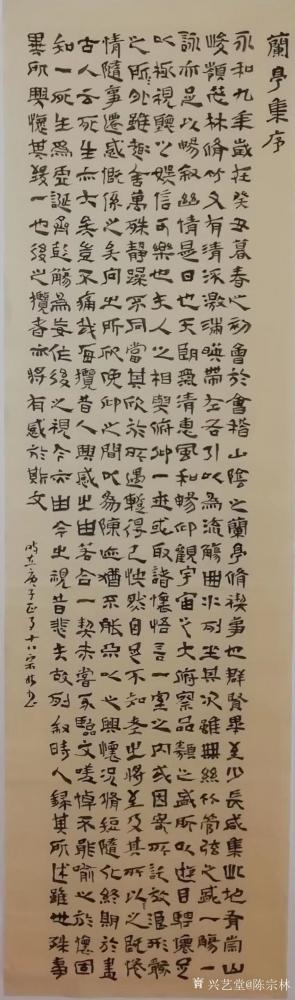 蘭亭集序
永和九年歲在癸丑暮春之初會於會稽山陰之蘭亭脩禊事也群賢畢至少長咸集此地有崇山
峻領茂林脩竹又有清流激湍暎帶左右引以為流觴曲水列坐其次雖無絲竹管弦之盛一觴一
詠亦足以暢敘幽情是日也天朗氣清惠風和暢仰觀宇宙之大俯察品類之盛所以遊目騁懷足
以極視聽之娛信可樂也夫人之相與俯仰一世或取諸懷悟言一室之內或因寄所託放浪形骸
之所外雖趣舍萬殊靜躁不同當其欣於所遇暫得己快然自足不知老之將至及其所以之既倦
情隨事遷感慨係之矣向之所欣俛仰之間以為陳迹猶不能不以之興懷況脩短隨化終期於盡
古人云死生亦大矣豈不痛哉每攬昔人興感之由若合一契未嘗不臨文嗟悼不能喻之於懷固
知一死生為虛誕齊彭殤為妄作後之視今亦由今之視昔悲夫故列敘時人錄其所述雖世殊事
異所興懷其致一也後之攬者亦將有感於斯文
時在庚子正月十八宗林書
兴艺堂@陈宗林